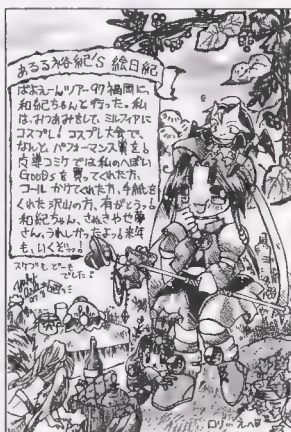 あるる裕紀'S 絵日記
ぱよえーんツアー97福岡に、
和紀ちゃんと行った。私
は、みつあみをして、ミルフィアに
コスプレ! コスプレ大会で、
なんと、パフォーマンス賞を!
コミケでは私のへぼい
GOODSを買ってくれた方、
コールかけてくれた方、手紙を
くれた沢山の方、有がとうっ!
和紀ちゃん、さぬきやせ
さん、うれしかったよっ!来年
も、いくどっ!!
スケブもどーも
でした!
ロリ… えへ